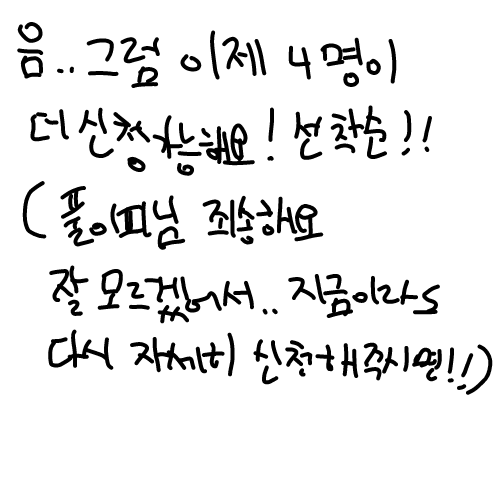 음..그럼 이제 4명이
더 신청가능해요! 선착순!!
(풀이피님 죄송해요
잘 모르겠어서.. 지금이라도
다시 자세히 신청해주시면!!)